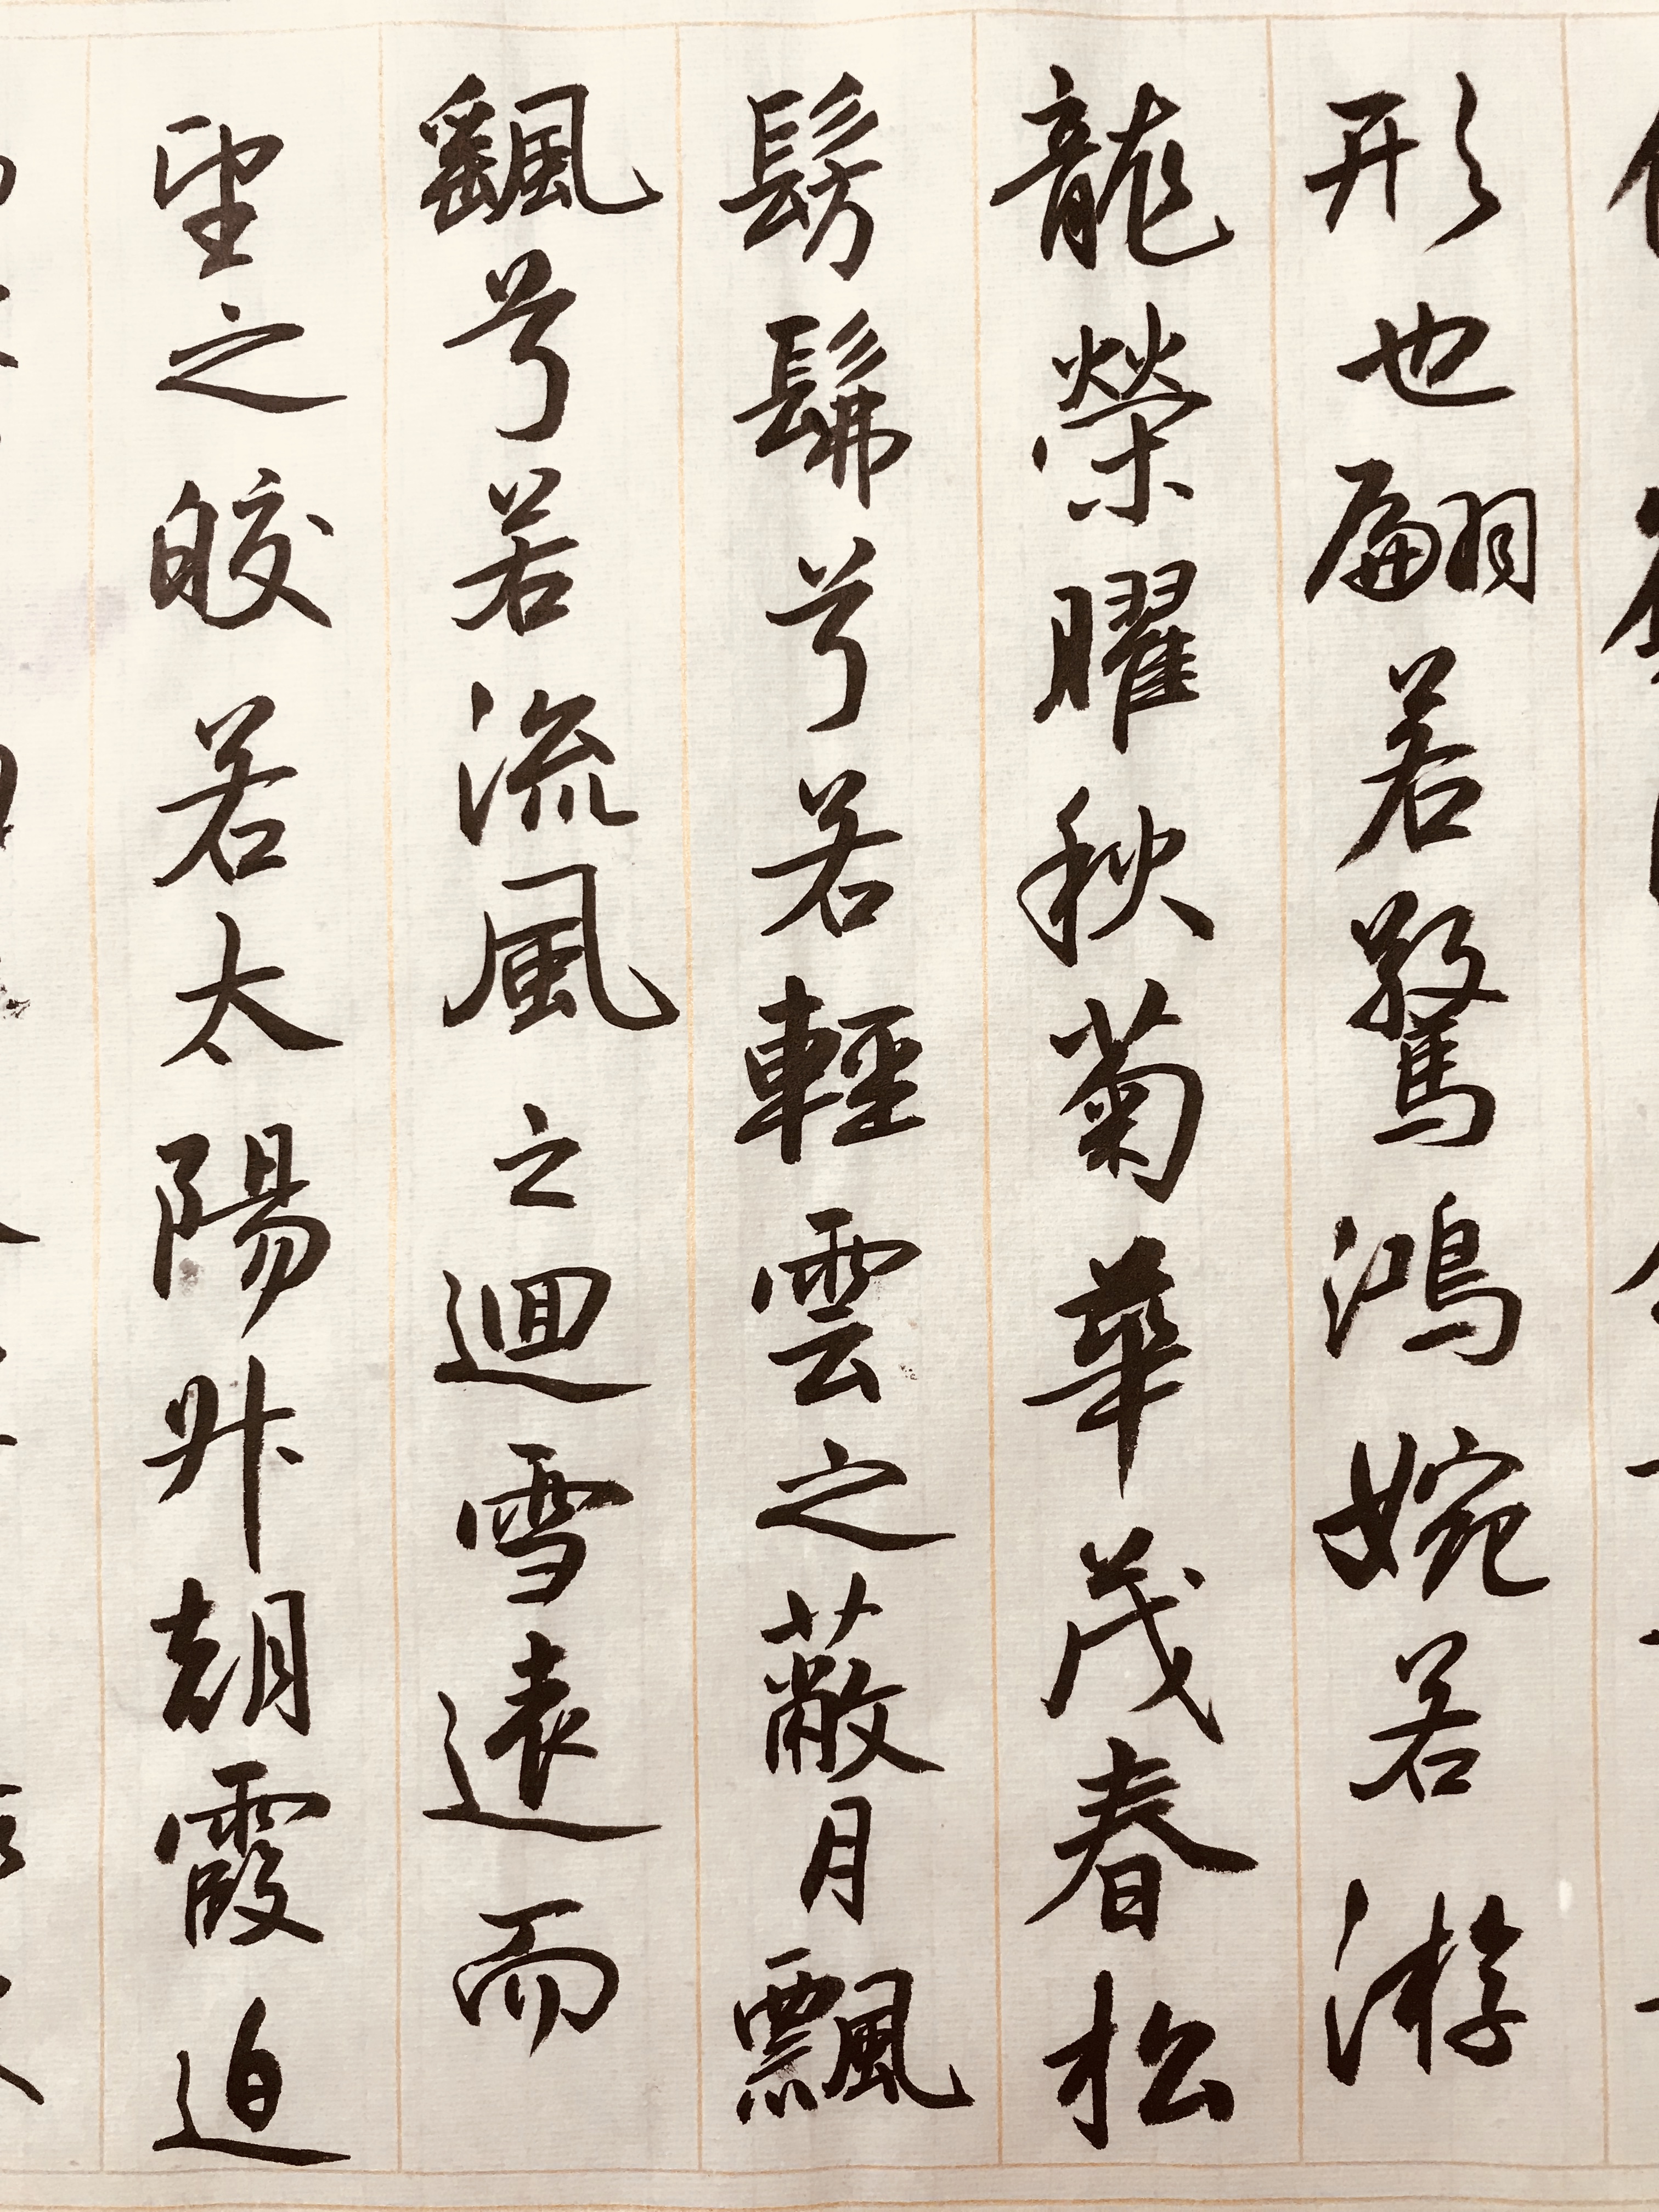 形也翩若驚鴻婉若游
龍榮曜秋菊華茂春松
髣髴兮若輕雲之蔽月飄
颻兮若流風之迴雪遠而
望之皎若太陽升朝霞迫